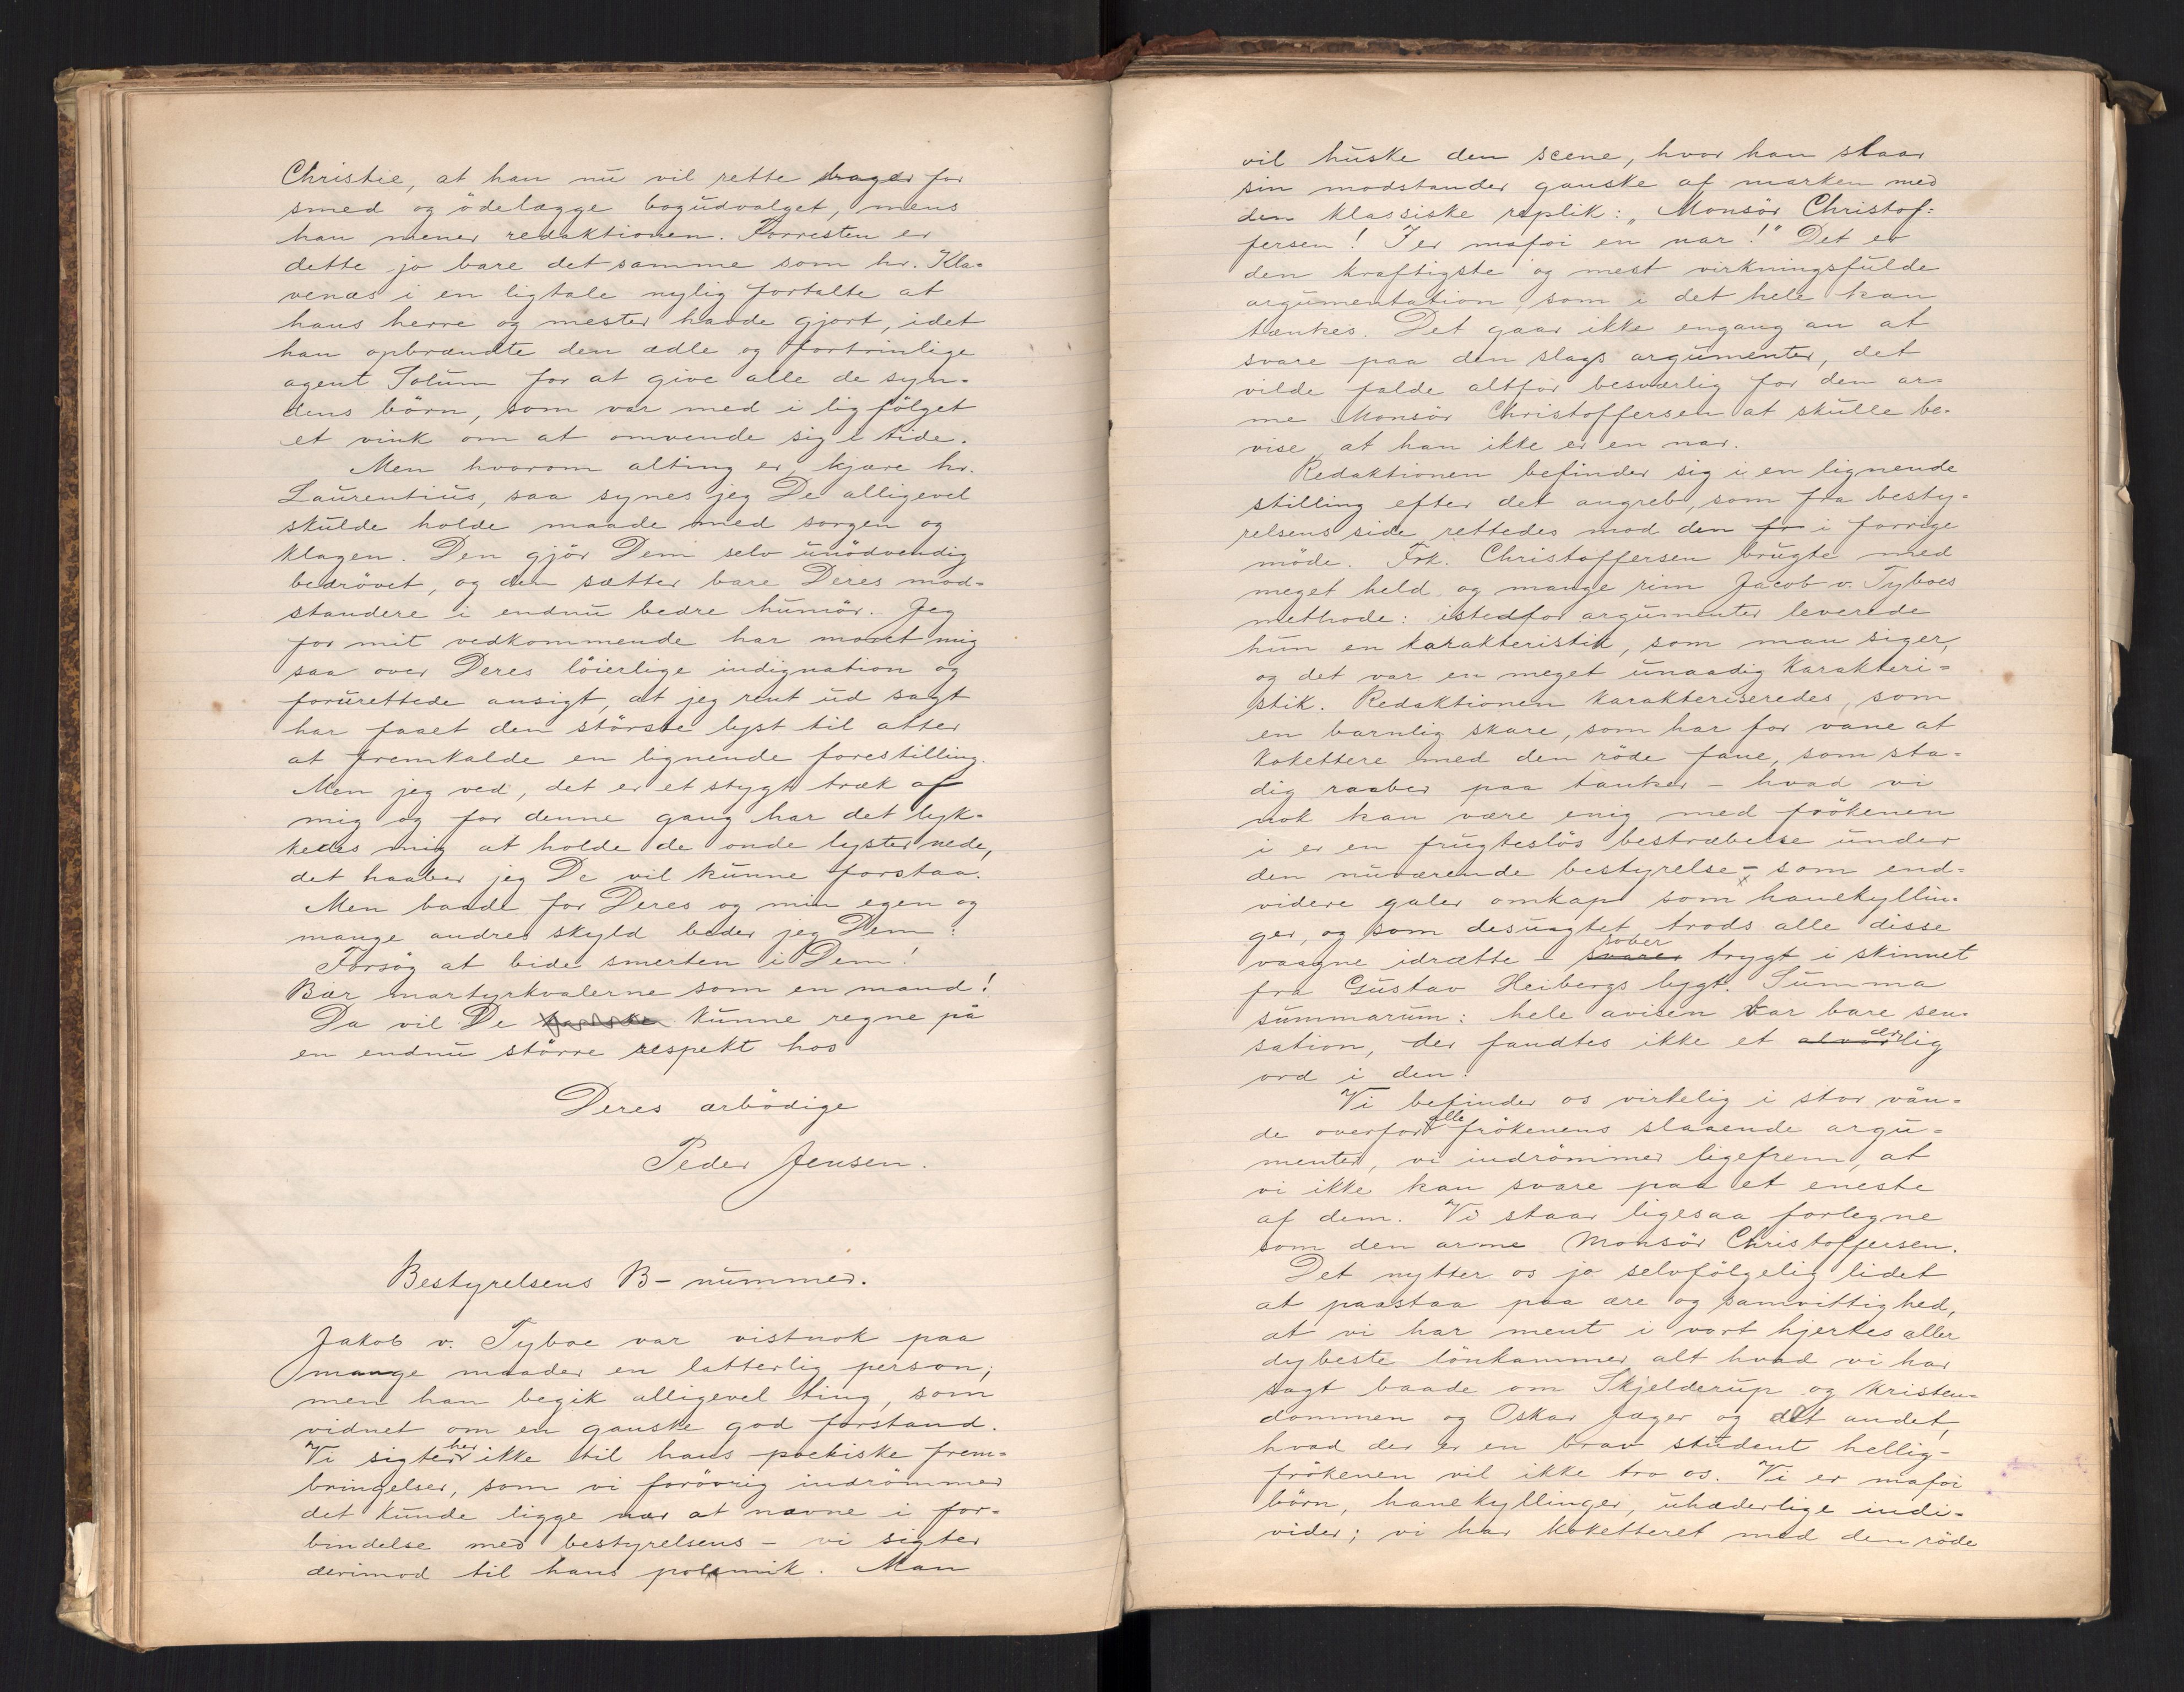 Christie, at han nu vil rette bager for
smed og ödelægge bogudvalget, mens
han mener redaktionen. Forresten er
dette jo bare det samme som hr. Kla-
venæs i en ligtale nylig fortalte at
hans herre og mester havde gjort, idet
han opbrændte den ædle og fortrinlige
agent Solum for at give alle de syn-
dens börn, som var med i ligfölget
et vink om at omvende sig i tide.
Men hvorom alting er, kjære hr.
Laurentius, saa synes jeg De alligevel
skulde holde maade med sorgen og
klagen. Den gjör Dem selv unödvendig
bedrövet, og den sætter bare Deres mod-
standere i endnu bedre humör. Jeg
for mit vedkommende har moret mig
saa over Deres löierlige indignation og
forurettede ansigt, at jeg rent ud sagt
har faaet den störste lyst til atter
at fremkalde en lignende forestilling.
Men jeg ved, det er et stygt træk af
mig og for denne gang har det lyk-
kedes mig at holde de onde lyster nede,
det haaber jeg De vil kunne forstaa.
Men baade for Deres og min egen og
mange andres skyld beder jeg Dem:
Forsög at bide smerten i Dem!
Bær martyrkvalerne som en mand!
Da vil De kunne regne på
en endnu större respekt hos
Deres ærbödige
Peder Jensen.
Bestyrelsens B-nummer.
Jakob v. Tyboe var vistnok paa
mange maader en latterlig person;
men han begik alligevel ting, som
vidnet om en ganske god forstand.
Vi sigter her ikke til hans poetiske frem-
bringelser, som vi forövrig indrömmer
det kunde ligge nær at nævne i for-
bindelse med bestyrelsens - vi sigter
derimod til hans polemik. Man
vil huske den scene, hvor han slaar
sin modstander ganske af marken med
den klassiske replik: „Monsör Christof-
fersen! I er mafoi en nar!" Det er
den kraftigste og mest virkningsfulde
argumentation, som i det hele kan
tænkes. Det gaar ikke engang an at
svare paa den slags argumenter, det
vilde falde altfor besværlig for den ar-
me Monsör Christoffersen at skulle be-
vise, at han ikke er en nar.
Redaktionen befinder sig i en lignende
stilling efter det angreb, som fra besty-
relsens side rettedes mod den fr i forrige
möde. Frk. Christoffersen brugte med
meget held og mange rim Jacob v. Tyboes
methode: istedfor argumenter leverede
hun en karakteristik, som man siger,
og det var en meget unaadig karakteri-
stik. Redaktionen karakteriseredes, som
en barnlig skare, som har for vane at
kokettere med den röde fane, som sta-
dig raaber paa tanker - hvad vi
nok kan være enig med frökenen
i er en frugteslös bestræbelse under
den nuværende bestyrelse - som end-
videre galer omkap som hanekyllin-
ger, og som desuagtet, trods alle disse
vaagne idrætte - svarer sover trygt i skinnet
fra Gustav Heibergs lygt. Summa
summarum: hele avisen var bare sen-
sation, der fandtes ikke et alvorlig ærlig
ord i den.
Vi befinder os virkelig i stor vån-
de overfor alle frökenens slaaende argu-
menter, vi indrömmer ligefrem, at
vi ikke kan svare paa et eneste
af dem. Vi staar ligesaa forlegne
som den arme Monsör Christoffersen.
Det nytter os jo selvfölgelig lidet
at paastaa paa ære og samvittighed,
at vi har ment i vort hjertes aller
dybeste lönkammer alt hvad vi har
sagt baade om Skjelderup og kristen-
dommen og Oskar Jæger og alt andet,
hvad der er en brav student hellig -
frökenen vil ikke tro os. Vi er mafoi
börn, hanekyllinger, uhæderlige indi-
vider; vi har koketteret med den röde